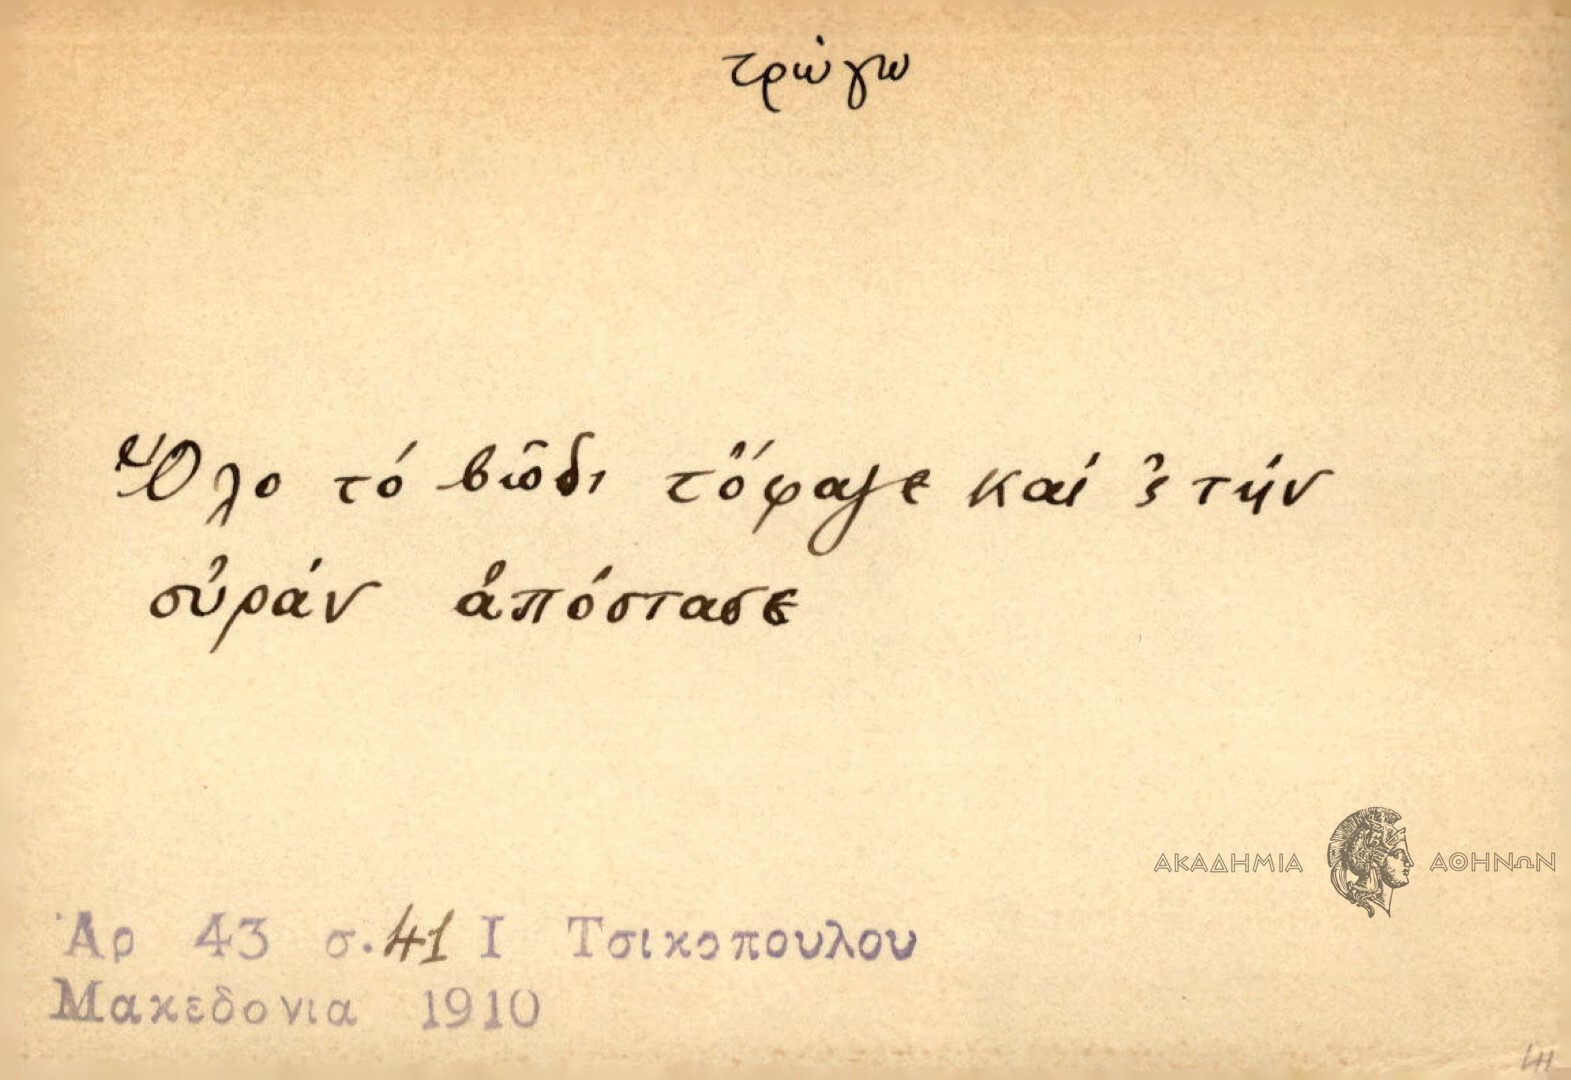 τρώγω
Ὅλο τό βῶδι τὄφαγε καί 'ς τήν
οὐράν ἀπόστασε
ΑΚΑΔΗΜΙΑ ΑΘΗΝΩΝ
Ἀρ 43 σ. 41 Ι Τσικοπουλου
Μακεδονια 1910